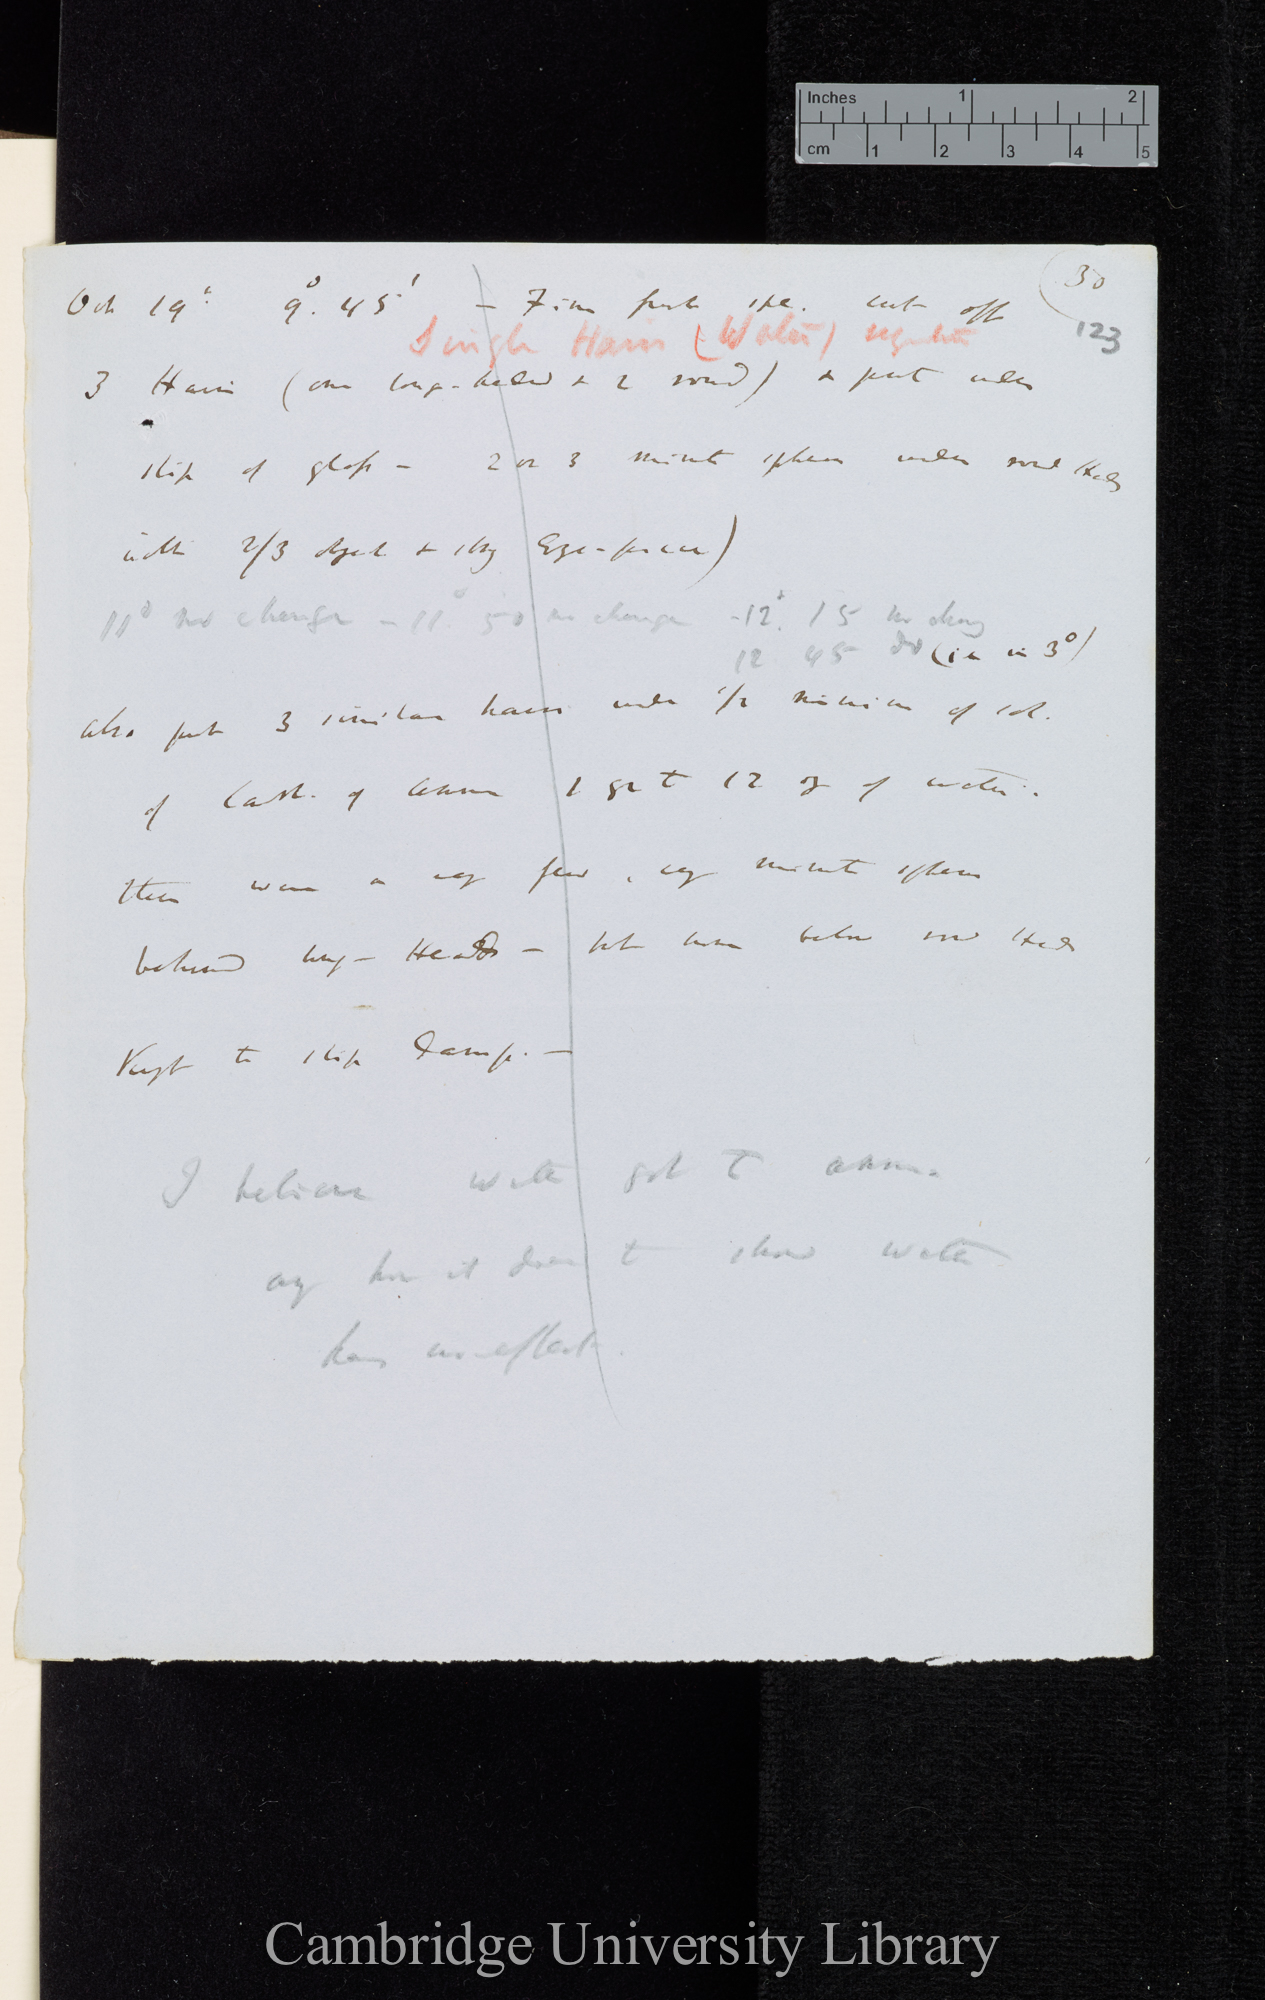 Inches 1 2
cm 1 2 3 4 5
30
123
Oct 19th 9°. 45' – Fine fresh spe. cut off
Single Hairs (Water)
3 Hairs (one long-headed & 2 round) & put under
slip of glass – 2 or 3 minute spheres under round Heads
with 2/3 object & stry Eye-piece)
11° no change – 11°. 50 no change – 12°. 15 no chang
12 45 do (ie in 3°)
also put 3 similar hairs under 1/2 minim of sol.
of Carb. of Amm 1 gr to 12 oz of water.
there were a very few, very minute spheres
behind long-Heads – but none below round Heads
Kept the slip damp. –
I believe water got to amm.
any how it does to show water
has no effect.
Cambridge University Library